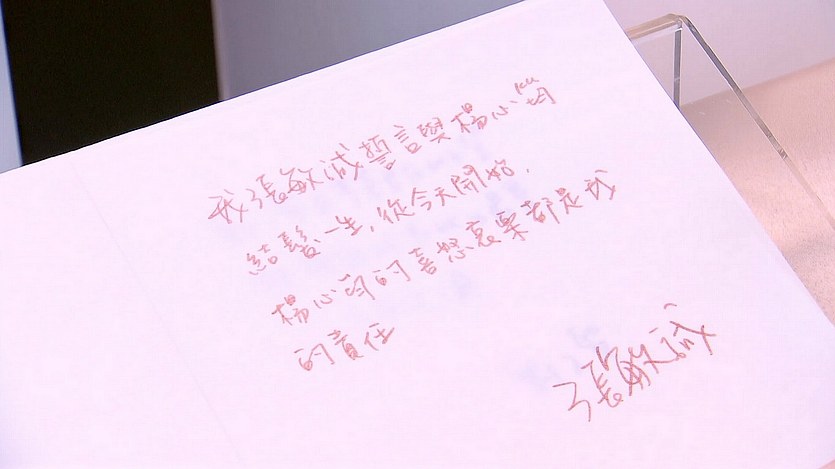 我張敏誠誓言與楊心筠
結髮一生,從今天開始,
楊心筠的喜怒哀樂都是我
的責任
張敏誠